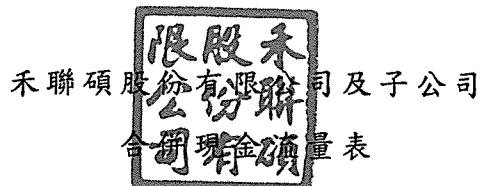 禾聯碩股份有限公司及子公司
合併現金流量表
禾聯碩
股份有
限公司